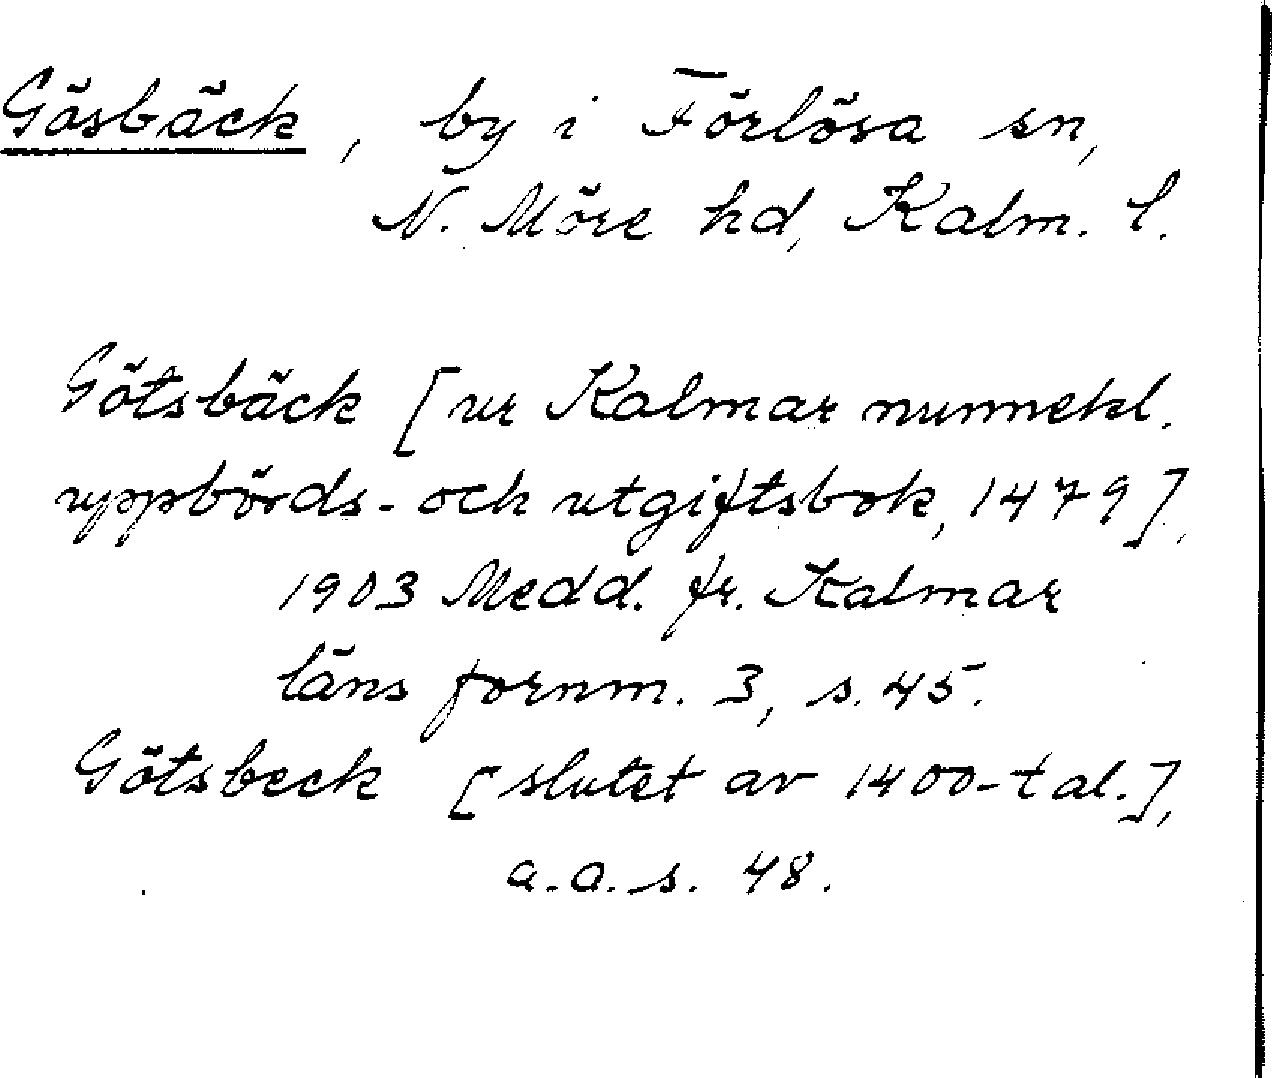 Gösbäck, by i Förlösa sn,
N. Möre hd, Kalm. l.
Götsbäck [ur Kalmar nunnekl.
uppbörds- och utgiftsbok, 1479],
1903 Medd. fr. Kalmar
läns fornm. 3, s. 45.
Götsbeck [slutet av 1400-tal.],
a.a. s. 48.